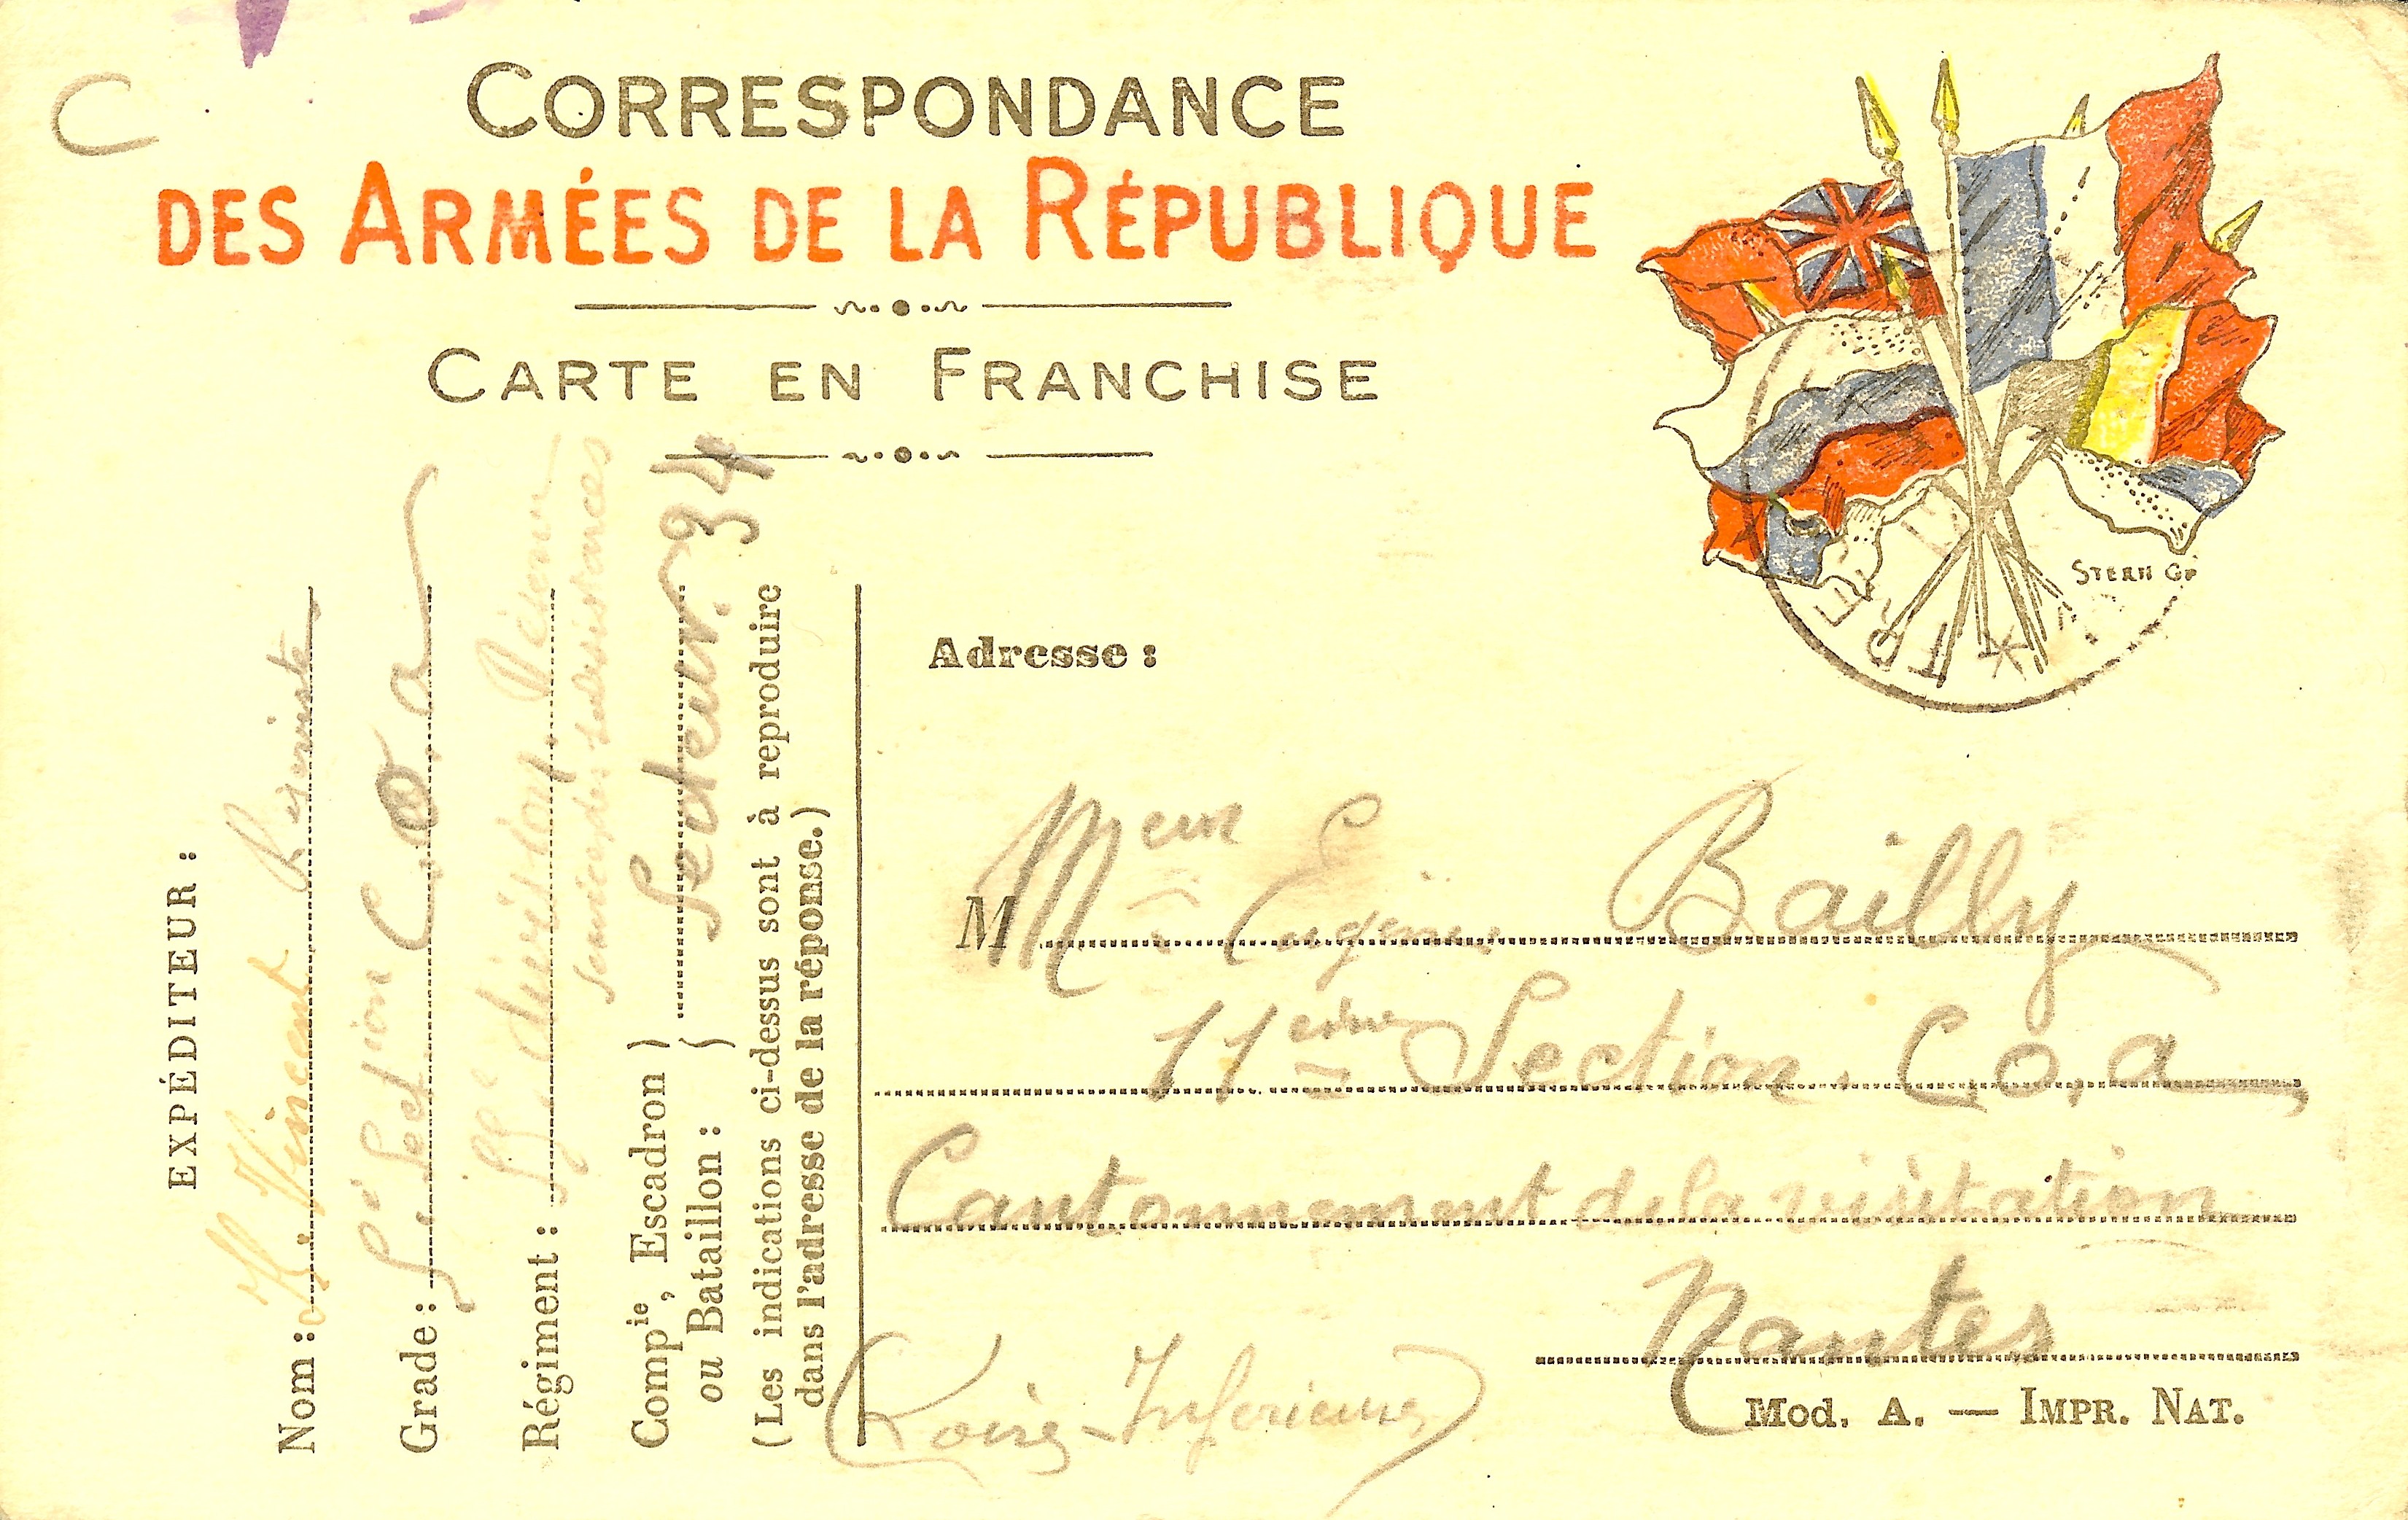 C
CORRESPONDANCE
DES ARMÉES DE LA RÉPUBLIQUE
CARTE EN FRANCHISE
STERN Gr
EXPÉDITEUR :
Nom : Vincent Réserviste
Grade : Section C. O. a
Régiment :
Compie, Escadron
ou Bataillon : } Secteur. 94
(Les indications ci-dessus sont à reproduire
dans l'adresse de la réponse.)
Adresse :
M Bailly
11eme Section. C. o. a
Cantonnement de la visitation
Nantes
(Loire-Inferieure)
Mod. A. — IMPR. NAT.